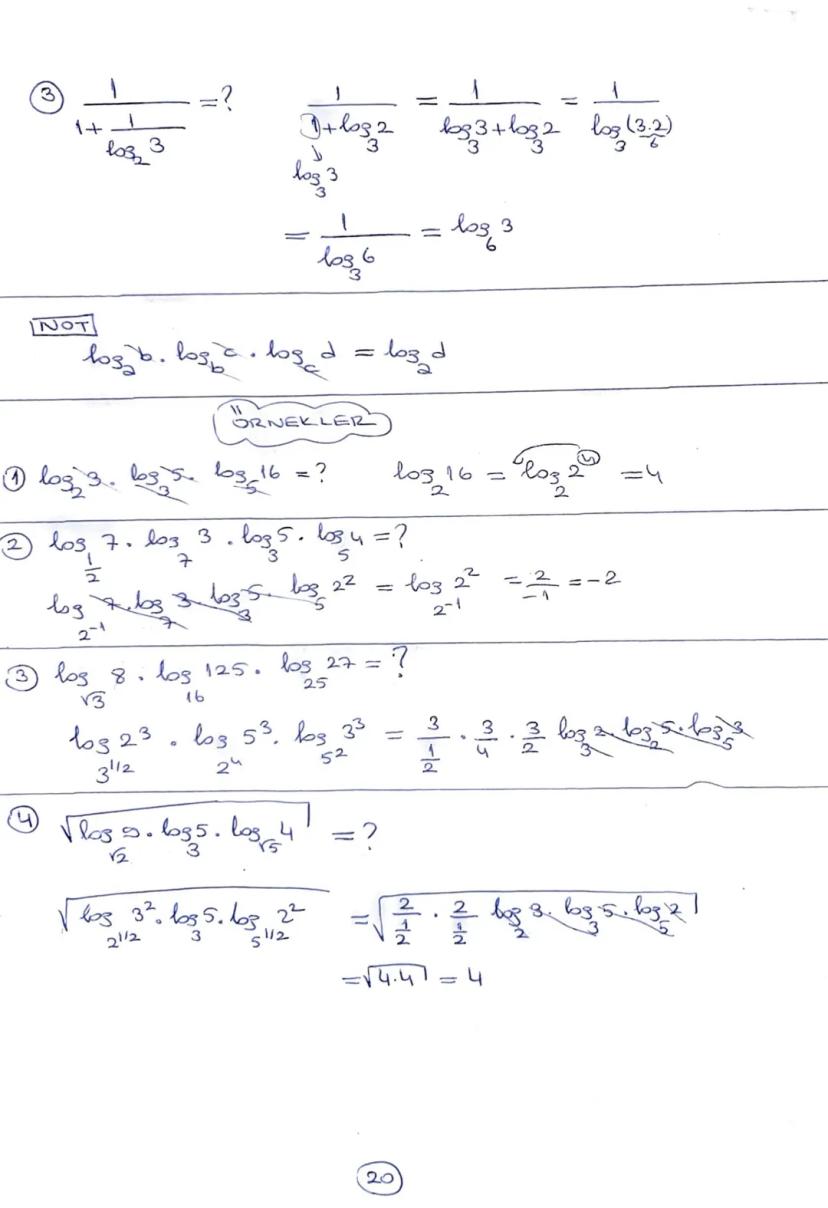 ③ 1/(1+1/(log₂3)) =? 1/(1+log₃2) = 1/(log₃3+log₃2) = 1/(log₃(3.2)) 6
log₃3
= 1/(log₃6) = log₆3
NOT
logₐb . log_b c . log_c d = logₐd
ÖRNEKLER
① log₂3 . log₃5 . log₅16 = ? log₂16 = log₂2⁴ = 4
② log_(1/2) 7 . log₇3 . log₃5 . log₅4 = ?
log_(2⁻¹) 7 . log₇3 . log₃5 . log₅2² = log_(2⁻¹) 2² = 2/-1 = -2
③ log_(√3) 8 . log₁₆125 . log₂₅27 = ?
log_(3^(1/2)) 2³ . log_(2⁴) 5³ . log_(5²) 3³ = 3/(1/2) . 3/4 . 3/2 log₃2 . log₂5 . log₅3
④ √(log_(√2) 9 . log₃5 . log_(√5) 4) = ?
√(log_(2^(1/2)) 3² . log₃5 . log_(5^(1/2)) 2²) = √(2/(1/2) . 2/(1/2) log₂3 . log₃5 . log₅2)
= √(4.4) = 4
20